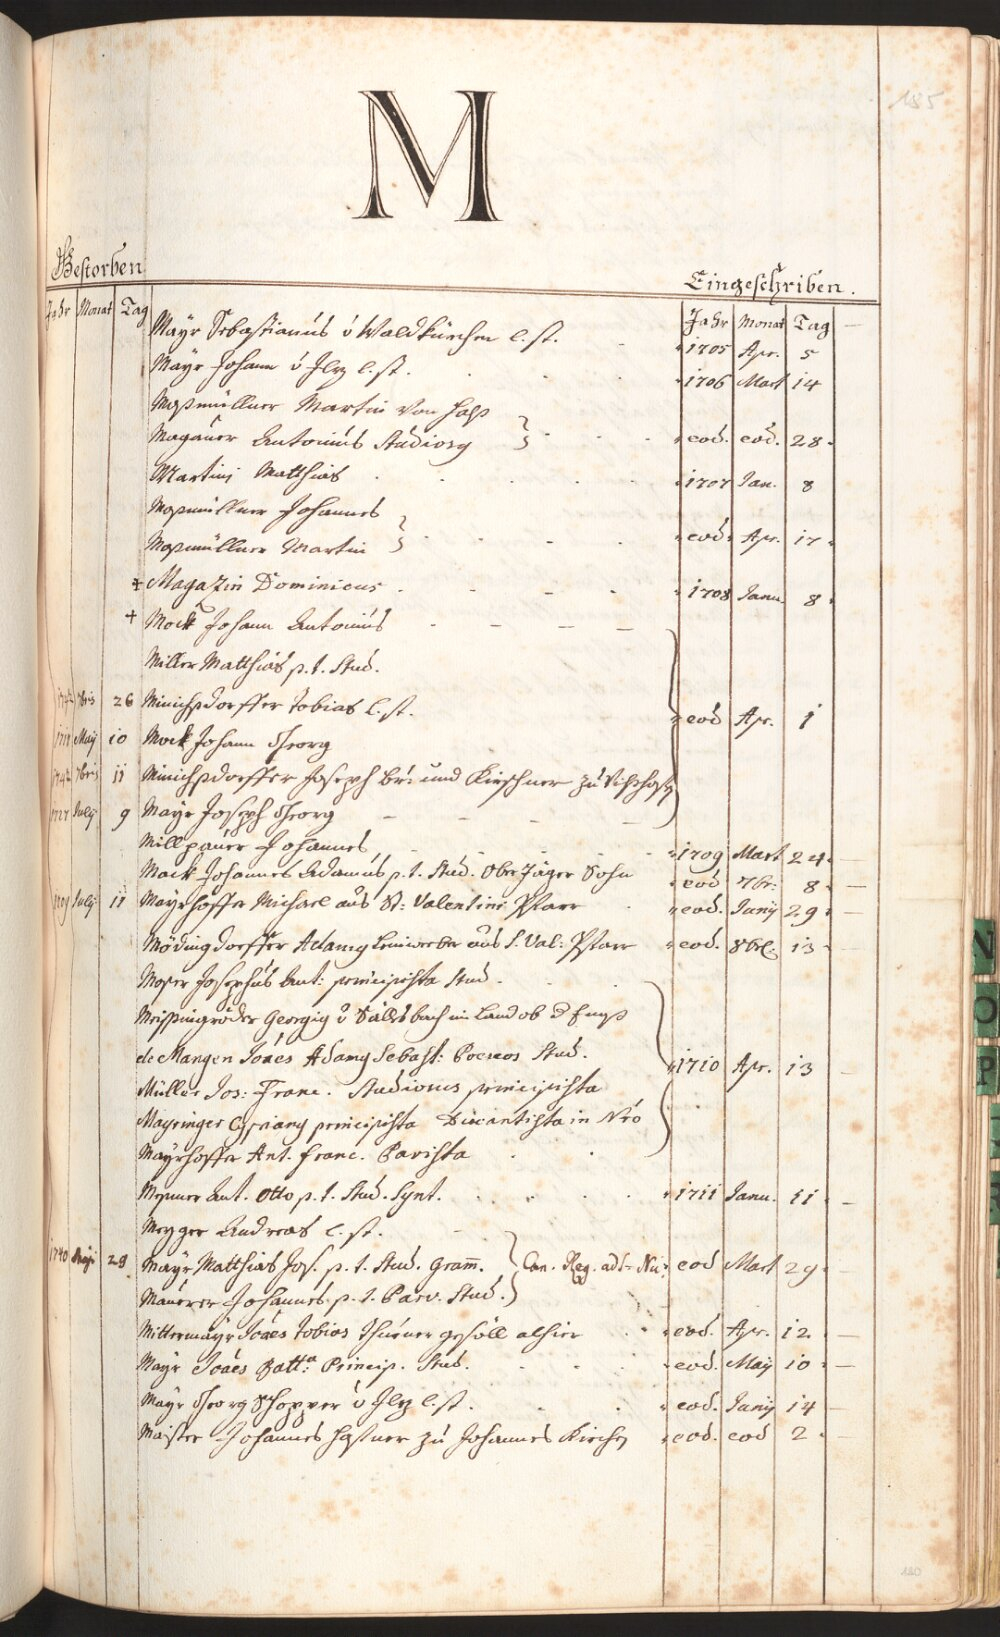 185
M
Gestorben
Eingeschriben.
Jahr Monat Tag
Jahr Monat Tag
Mayr Sebastianus v Waldkürchen l. st. 1705 Apr. 5
Mayr Johann v Ilz l. st. 1706 Mart 14
Moßmüllner Martin von
Magauer Antonius Studiosg } eod. eod. 28
Martini Matthias 1707 Jan. 8
Moßmüllner Johannes
Moßmüllner Martin } eod. Apr. 17
+ Magazin Dominicus 1708 Janu. 8
+ Mock Johann Antonius
Miller Matthias p. t. Stud.
7bris 26 Minichsdorffer Tobias l. st. eod Apr. 1
May 10 Mock Johann Georg
1742 7bris 11 Minichsdorffer Joseph Br: und Kirschner zu Vilßhofen
1727 July 9 Mayr Joseph Georg
Millpauer Johannes 1709 Mart 24
Mack Johannes Adamus p. t. Stud. Ober Jäger Sohn eod 7br: 8
1709 July 11 Mayrhoffer Michael aus St: Valentini Pfarr eod. Junij 29
Mödingdorffer Adamg Leinweber aus S. Val: Pfarr eod. 8br. 13
Moser Josephus Ant: principista Stud.
Georgig v im Land ob d Ennß
de Mangen Joães Adamg Sebast: Poeseos Stud. 1710 Apr. 13
Müller Jos: Franc. Studiosus principista
Mayringer Cypriang principista Discantista in
Mayrhoffer Ant. Franc. Parvista
Ant. Otto p. t. Stud. Synt. 1711 Janu. 11
Mezger Andreas l. st.
1740 29 Mayr Matthias Jos. p. t. Stud. Gram̄. } Can. Reg. ad S. Nic: eod Mart 29
Maurer Johannes p. t. Parv. Stud.
Mittermayr Joães Tobias Thurner gesöll alhier eod. Apr. 12
Mayr Joães Batt: Princip. Stud. eod. May 10
Mayr Georg Schopper v Ilz l. st. eod. Junij 14
Maister Johannes Haffner zu Johannes Kirchen eod. eod 2
N
O
P
R
180